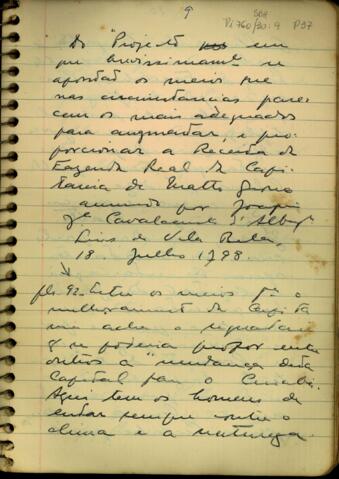 9
SBH
Pi 760/20:9 P97
Do "Projecto em
que brevissimamte se
apontão os meios que
nas circunstancias pare-
cem os mais adequados
para augmentar e pro-
porcionar a Receita da
Fazenda Real da Capi-
tania de Matto Grosso
por Joaqm
Je Cavalcante d'Albuqe
Lins de Villa Bella,
18. Julho 1798
fls. 92. Entre os meios pa o
melhoramto da Capita-
nia acha o signatario
q se poderia propor entre
outros a "mudança desta
Capital para o Cuiabá.
Aqui tem os homens de
andar sempre contra o
clima e a natureza.